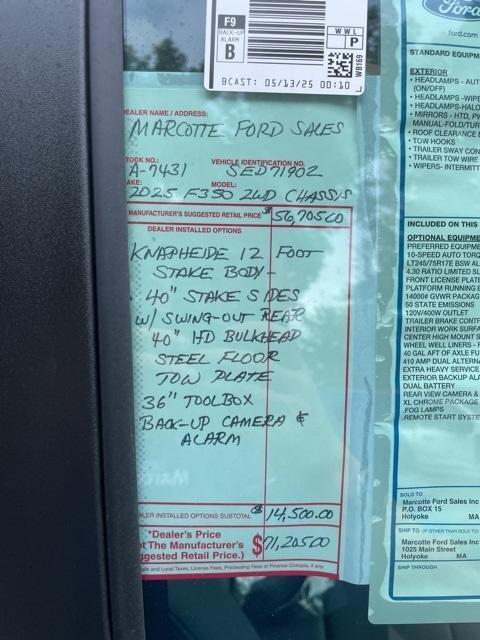 F9
BACK-UP
ALARM
B
W W L
P
WB169
BCAST: 05/13/25 00:10
DEALER NAME / ADDRESS:
MARCOTTE FORD SALES
STOCK NO.:
VEHICLE IDENTIFICATION NO.
A-7431
SED71902
MAKE:
MODEL:
2025 F350 2WD CHASSIS
MANUFACTURER'S SUGGESTED RETAIL PRICE
$56,705.00
DEALER INSTALLED OPTIONS
KNAPHEIDE 12 FOOT
STAKE BODY-
40" STAKE SIDES
W/ SWING-OUT REAR
40" HD BULKHEAD
STEEL FLOOR
TOW PLATE
36" TOOLBOX
BACK-UP CAMERA &
ALARM
DEALER INSTALLED OPTIONS SUBTOTAL
$14,500.00
"Dealer's Price
(Not The Manufacturer's
Suggested Retail Price.)
$71,205.00
State and Local Taxes, License Fees, Processing Fees or Finance Charges, if any.
Ford
ford.com
STANDARD EQUIPM
EXTERIOR
• HEADLAMPS - AUT
(ON/OFF)
• HEADLAMPS -WIPE
• HEADLAMPS-HALO
• MIRRORS - HTD, PW
MANUAL-FOLD/TUR
• ROOF CLEARANCE
• TOW HOOKS
• TRAILER SWAY CON
• TRAILER TOW WIRE
• WIPERS- INTERMITT
INCLUDED ON THIS
OPTIONAL EQUIPME
PREFERRED EQUIPME
10-SPEED AUTO TORQ
LT245/75R17E BSW AL
4.30 RATIO LIMITED SL
FRONT LICENSE PLATE
PLATFORM RUNNING B
14000# GVWR PACKAG
50 STATE EMISSIONS
120V/400W OUTLET
TRAILER BRAKE CONT
INTERIOR WORK SURFA
CENTER HIGH MOUNT S
WHEEL WELL LINERS - F
40 GAL AFT OF AXLE FU
410 AMP DUAL ALTERNA
EXTRA HEAVY SERVICE
EXTERIOR BACKUP ALA
DUAL BATTERY
REAR VIEW CAMERA &
XL CHROME PACKAGE
.FOG LAMPS
.REMOTE START SYSTE
SOLD TO
Marcotte Ford Sales Inc
P.O. BOX 15
Holyoke MA
SHIP TO (IF OTHER THAN SOLD TO)
Marcotte Ford Sales Inc
1025 Main Street
Holyoke MA
SHIP THROUGH